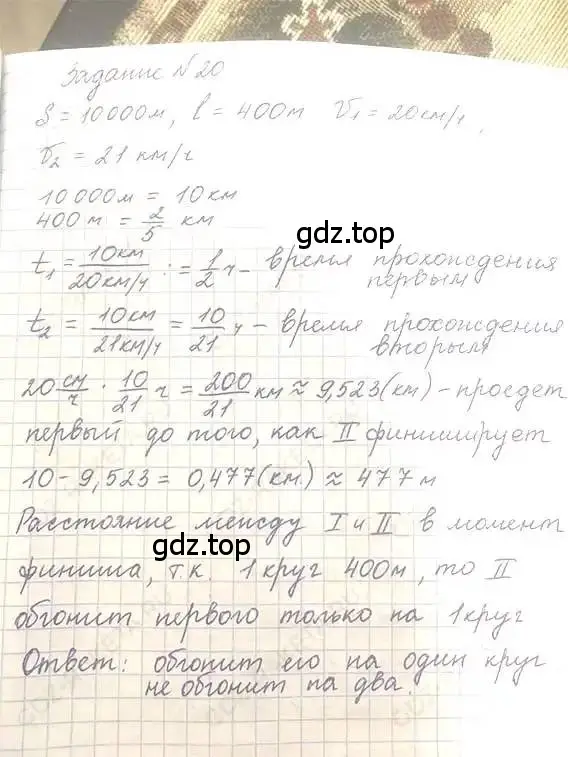 Задание №20
S = 10000м, l = 400м V₁ = 20км/ч,
V₂ = 21 км/ч
10 000м = 10км
400м = 2/5 км
gdz.top
t₁ = 10км/20км/ч = 1/2 ч - время прохождения первым
t₂ = 10км/21км/ч = 10/21 ч - время прохождения вторым
20 км/ч · 10/21 ч = 200/21 км ≈ 9,523(км) - проедет
первый до того, как II финиширует
10 - 9,523 = 0,477(км) ≈ 477м
Расстояние между I и II в момент
gdz.top
финиша, т.к. 1 круг 400м, то II
обгонит первого только на 1 круг
Ответ: обгонит его на один круг
не обгонит на два.
gdz.top